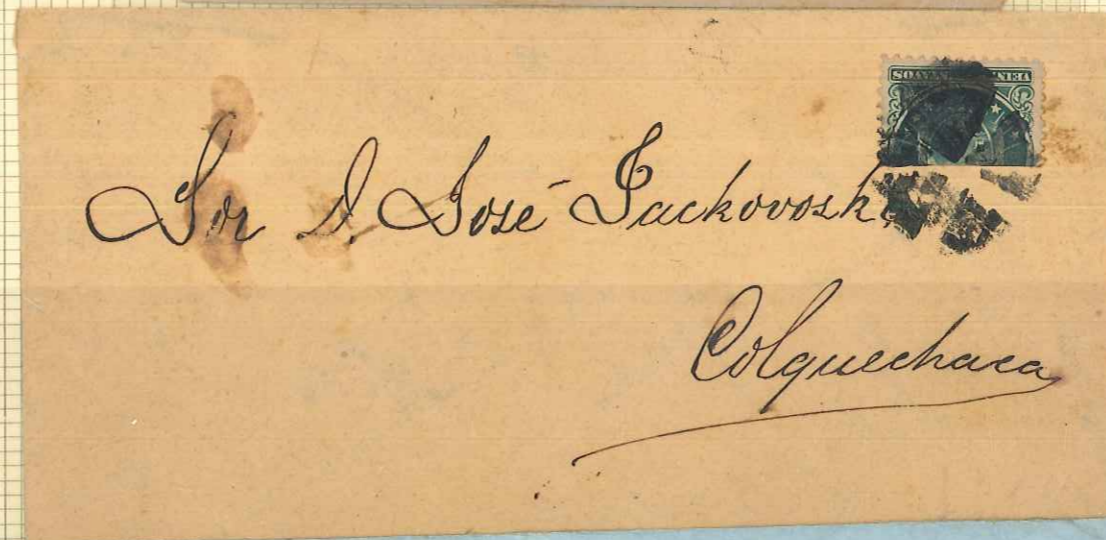 Sor D. José Jackovosk
Colquechaca